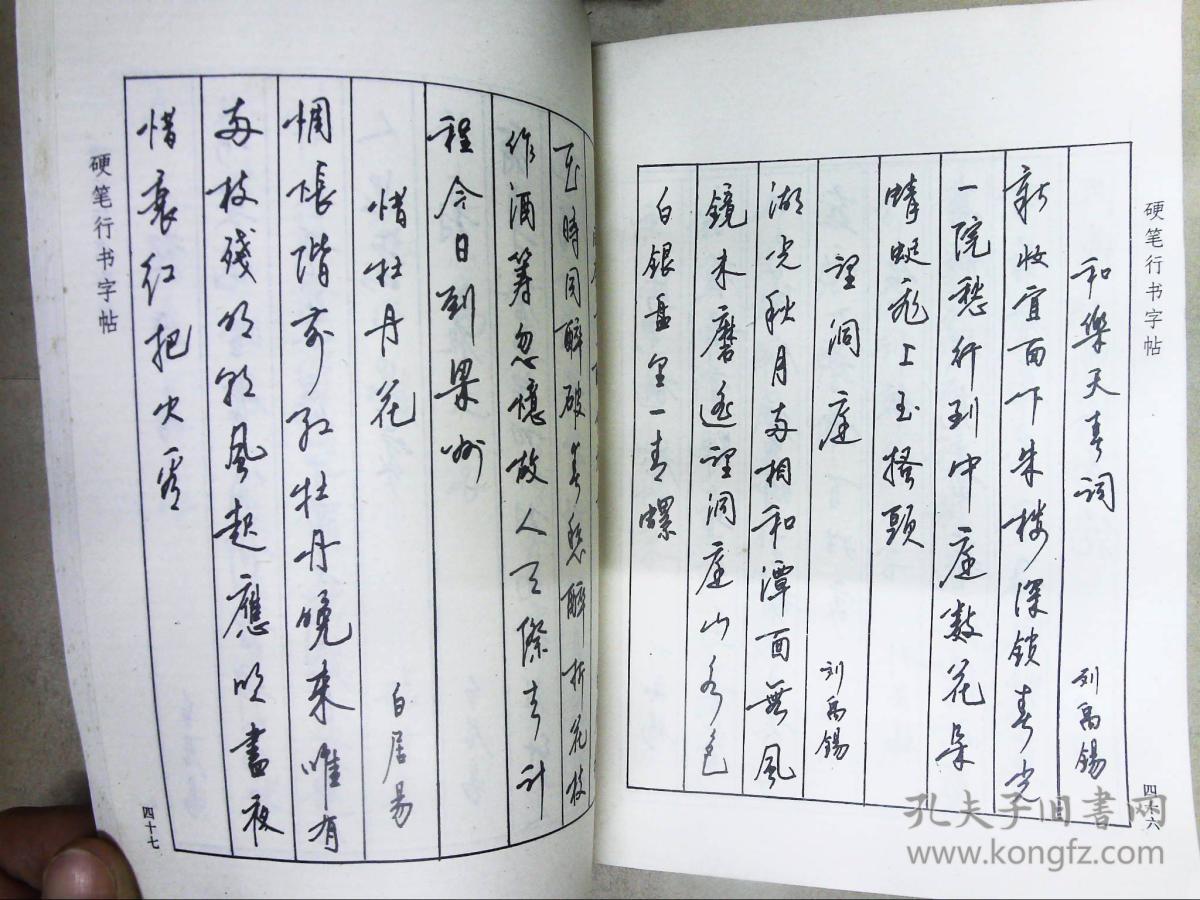 硬笔行书字帖
和樂天春词 刘禹锡
新妆宜面下朱楼深锁春光
一院愁行到中庭数花朵
蜻蜓飛上玉搔頭
望洞庭 刘禹锡
湖光秋月两相和潭面無風
鏡未磨遥望洞庭山水色
白銀盘里一青螺
四十六
花時同醉破春愁醉折花枝
作酒筹忽憶故人天際去计
程今日到梁州
惜牡丹花 白居易
惆怅階前红牡丹晚来唯有
两枝殘明朝風起應吹盡夜
惜衰红把火看
硬笔行书字帖
四十七
孔夫子旧书网
www.kongfz.com